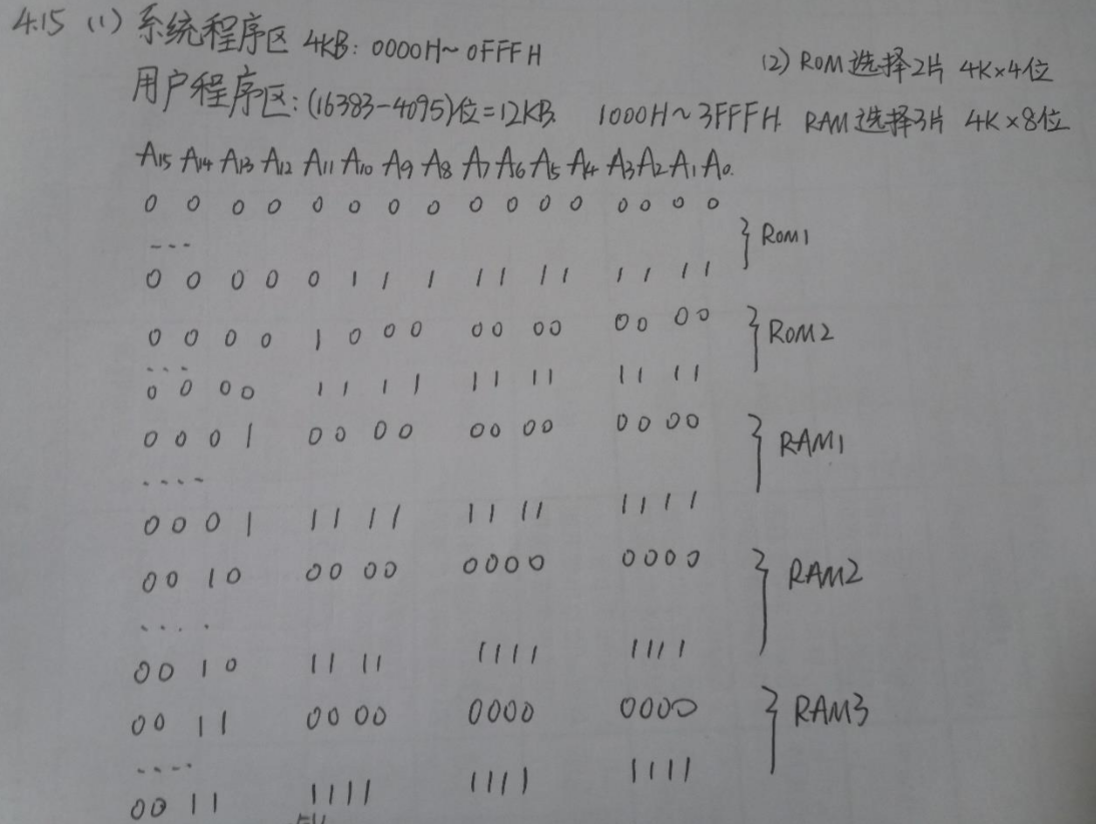 4.15 (1) 系统程序区 4KB: 0000H~0FFFH (2) ROM选择2片 4K×4位
用户程序区:(16383-4095)位=12KB. 1000H~3FFFH. RAM选择3片 4K×8位
A15 A14 A13 A12 A11 A10 A9 A8 A7 A6 A5 A4 A3 A2 A1 A0.
0 0 0 0 0 0 0 0 0 0 0 0 0 0 0 0
... } ROM1
0 0 0 0 0 1 1 1 1 1 1 1 1 1 1 1
0 0 0 0 1 0 0 0 0 0 0 0 0 0 0 0
... } ROM2
0 0 0 0 1 1 1 1 1 1 1 1 1 1 1 1
0 0 0 1 0 0 0 0 0 0 0 0 0 0 0 0
.... } RAM1
0 0 0 1 1 1 1 1 1 1 1 1 1 1 1 1
0 0 1 0 0 0 0 0 0 0 0 0 0 0 0 0
.... } RAM2
0 0 1 0 1 1 1 1 1 1 1 1 1 1 1 1
0 0 1 1 0 0 0 0 0 0 0 0 0 0 0 0
.... } RAM3
0 0 1 1 1 1 1 1 1 1 1 1 1 1 1 1